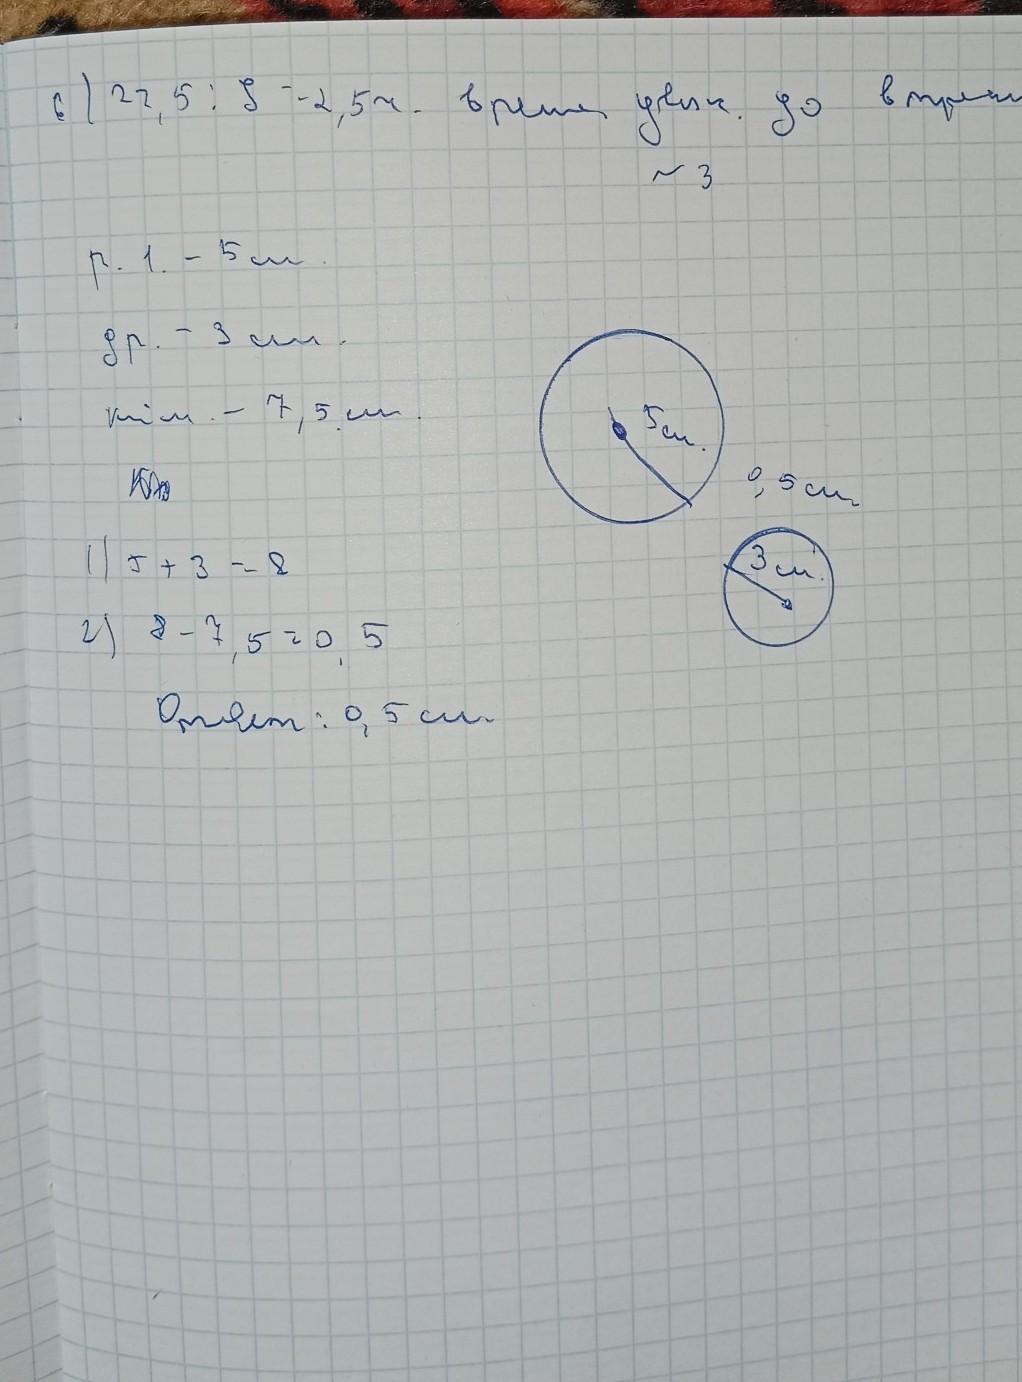 6) 22,5 : 9 = 2,5ч. время движ. до встречи
~ 3
р. 1. - 5 см.
др. - 3 см.
- 7,5 см.
5 см.
0,5 см
3 см.
1) 5 + 3 = 8
2) 8 - 7,5 = 0,5
Ответ: 0,5 см